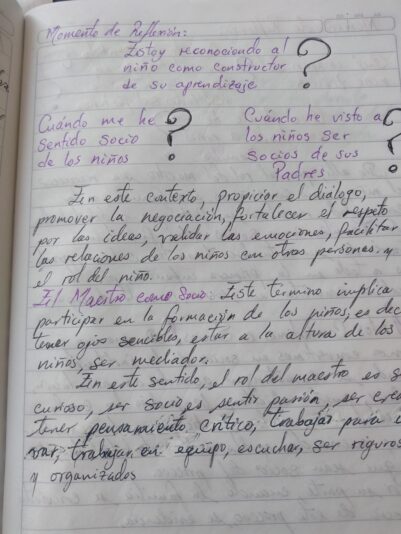 Momento de Reflexión:
Estoy reconociendo al
niño como constructor
de su aprendizaje
?
Cuándo me he
sentido socio
de los niños
?
Cuándo he visto a
los niños ser
socios de sus
Padres
?
En este contexto, propiciar el diálogo,
promover la negociación, fortalecer el respeto
por las ideas, validar las emociones, facilitar
las relaciones de los niños con otras personas y
el rol del niño.
El Maestro como Socio: Este término implica
participar en la formación de los niños, es dec
tener ojos sencibles, estar a la altura de los
niños, ser mediador.
En este sentido, el rol del maestro es s
curioso, ser socio es sentir pasión, ser crea
tener pensamiento crítico, trabajar para i
var, trabajar en equipo, escuchar, ser riguros
y organizados